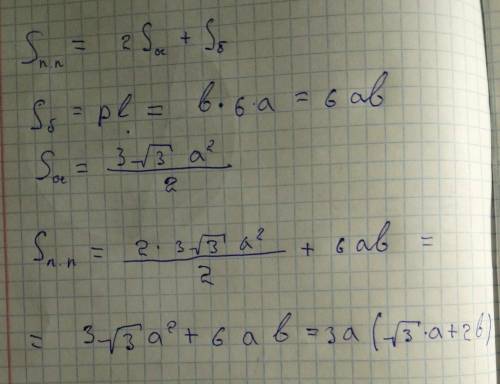 Sп.п = 2Sос + Sб
Sб = pl = b · 6 · a = 6 ab
Sос = 3√3 a² / 2
Sп.п = 2 · 3√3 a² / 2 + 6 ab =
= 3√3 a² + 6 a b = 3a (√3 · a + 2b)